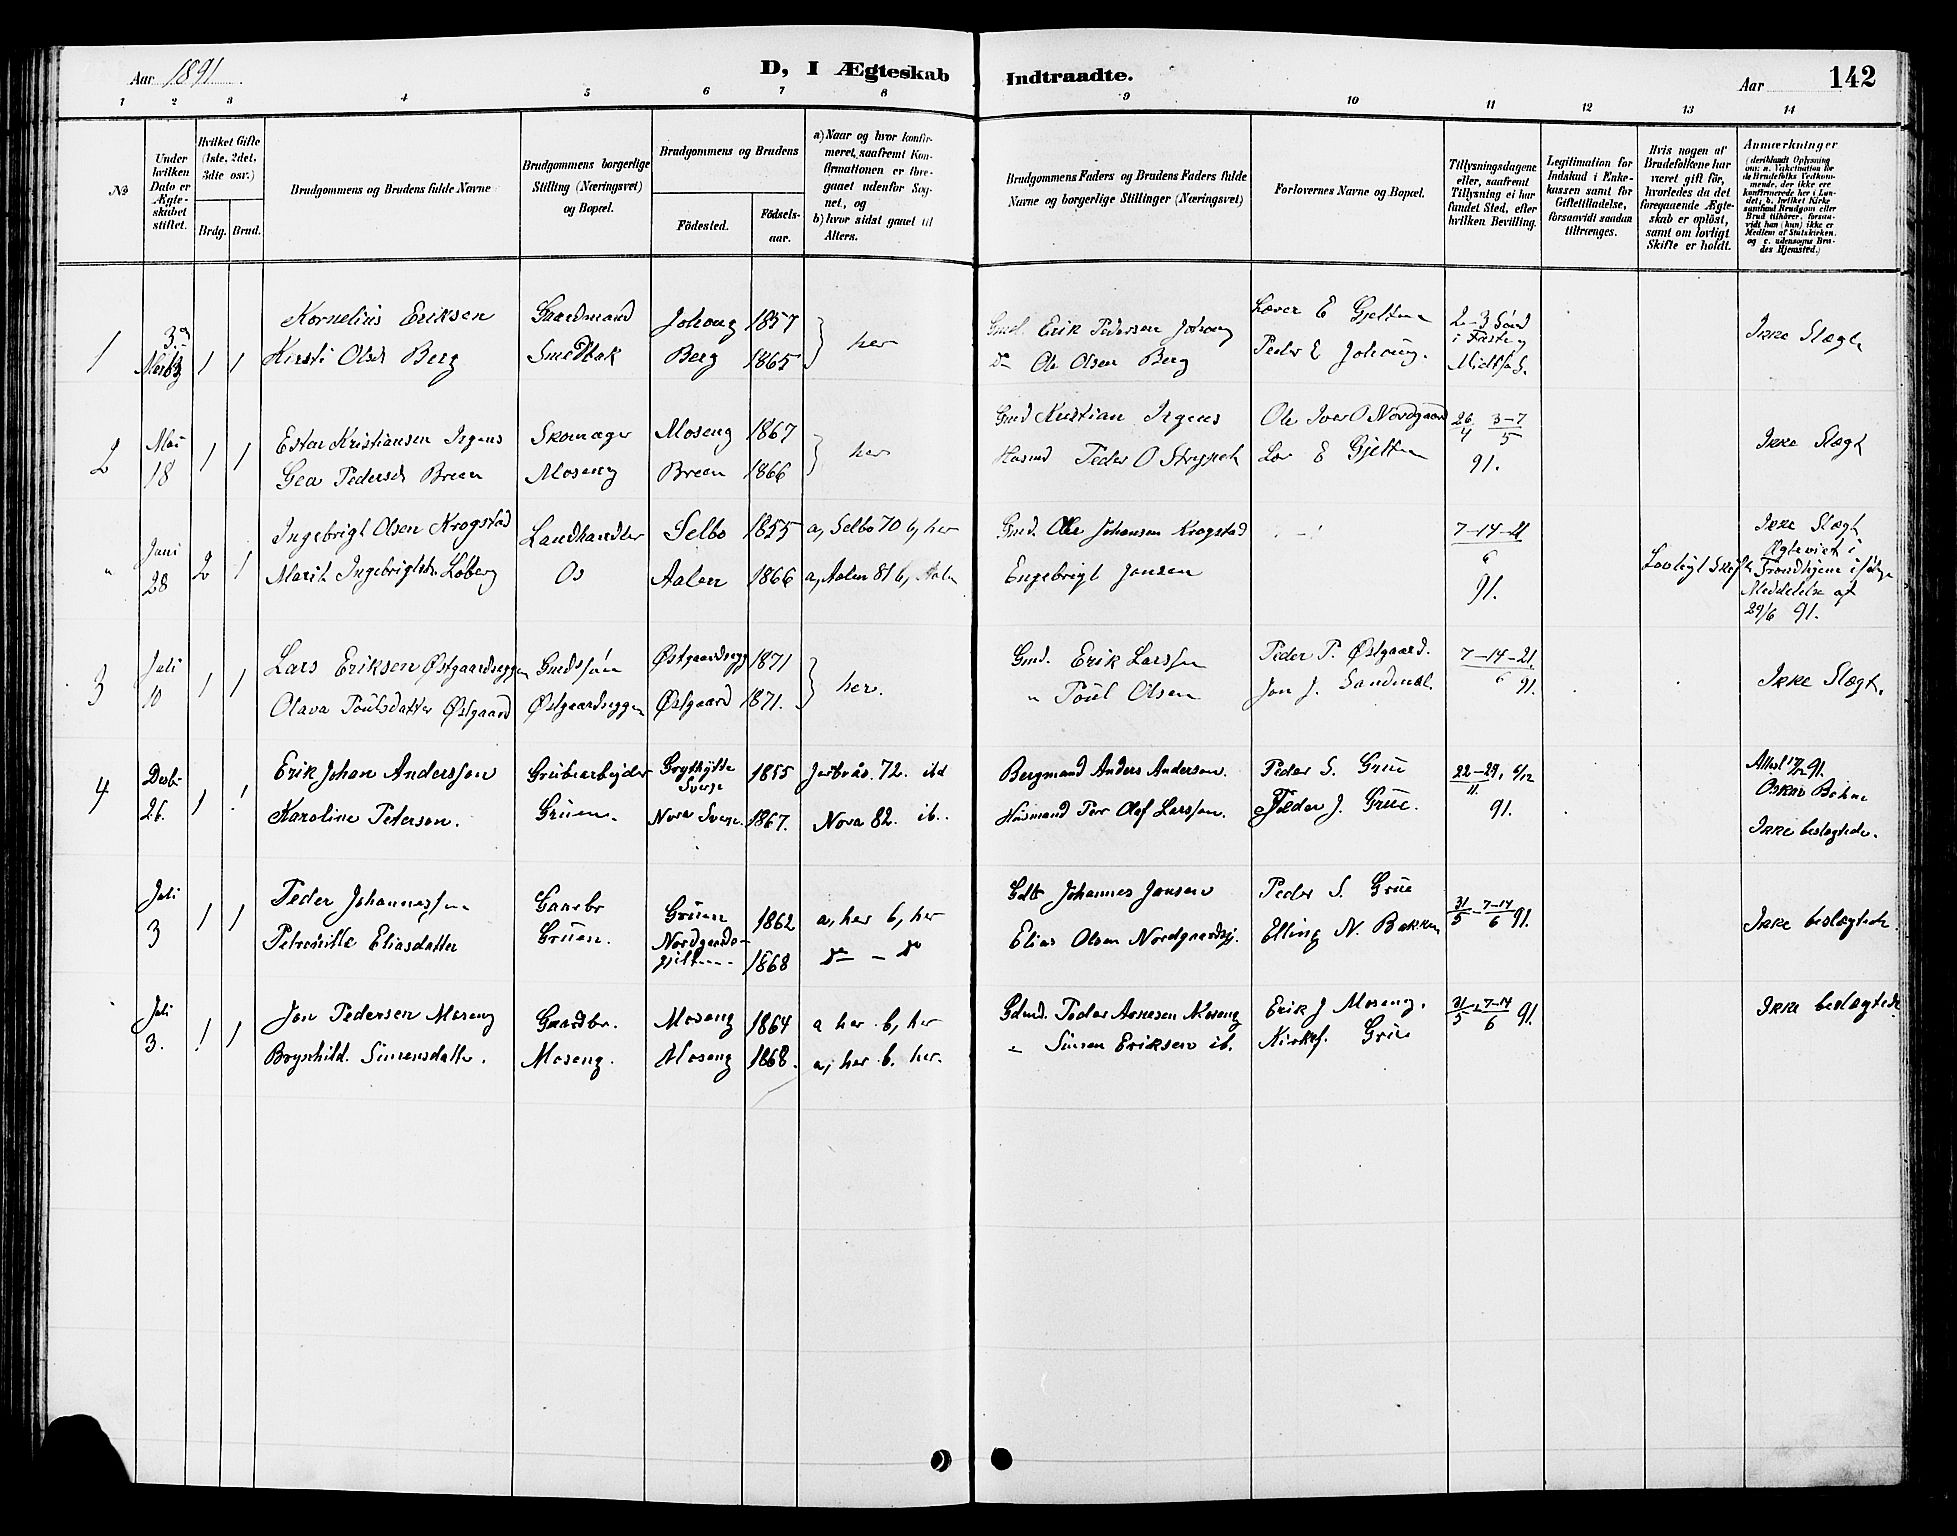 Aar 1891
D, I Ægteskab Indtraadte.
Aar 142
1 2 3 4 5 6 7 8 9 10 11 12 13 14
No
Under hvilken Dato er Ægteskabet stiftet.
Hvilket Gifte (1ste, 2det, 3die osv.)
Brdg. Brud.
Brudgommens og Brudens fulde Navne
Brudgommens borgerlige Stilling (Næringsvei) og Bopæl.
Brudgommens og Brudens
Födested.
Födselsaar.
a) Naar og hvor konfirmeret, saafremt Konfirmationen er foregaaet udenfor Sognet, og
b) hvor sidst gaaet til Alters.
Brudgommens Faders og Brudens Faders fulde Navne og borgerlige Stillinger (Næringsvei)
Forlovernes Navne og Bopæl.
Tillysningsdagene eller, saafremt Tillysning ei har fundet Sted, efter hvilken Bevilling.
Legitimation for Indskud i Enkekassen samt for Giftetilladelse, forsaavidt saadan tiltrænges.
Hvis nogen af Brudefolkene har været gift för, hvorledes da det foregaaende Ægteskab er oplöst, samt om lovligt Skifte er holdt.
Anmærkninger
1 Kornelius Eriksen Gaardmand 1857
1 1 Kirsti Olsd Berg Smedbak Berg 1865 her
Gmd. Erik Pedersen
do Ole Olsen Berg
Peder E
2-3 Sönd i Fasten
Ikke Slægt
2 Mai 18 1 1
Estor Kristiansen Irgens Skomager Moseng 1867
Gea Pedersd Breen Moseng Breen 1866 her
Gmd Kristian Irgens
Husmd Peder O
Ole Iver O Nordgaard
E Gjelten
26/4 3-7/5 91.
Ikke Slægt
" Juni 28 2 1
Ingebrigt Olsen Krogstad Landhandler Selbo 1855 a, Selbo 70 b, her
Marit Ingebrigtsdr Loberg Os Aalen 1866 a, Aalen 81 b, Aalen
Gmd. Ole Johansen Krogstad
Engebrigt Jonsen
7-14-21/6 91.
Lovligt Skifte
Ikke Slægt
Ægteviet i Trondhjem ifølge Meddelelse af 29/6 91.
3 Juli 10 1 1
Lars Eriksen Østgaardseggen Gmdssøn Østgaardsegg 1871
Olava Poulsdatter Østgaard Østgaardseggen Østgaard 1871. her.
Gmd. Erik Larssen
" Poul Olsen
Peder P. Østgaard.
Jon J. Sandmæl.
7-14-21/6 91.
Ikke Slægt.
4 Decbr 26. 1 1
Erik Johan Anderssen Grubearbejder Grythytte Sverge 1855 72. ibd
Karoline Peterson. Gruen. Nora Sverge. 1867. Nora 82. ib.
Bergmand Anders Anderson.
Husmand Per Olof Larsson.
Peder S. Grue
Peder J. Grue.
22-29/11 6/12 91.
Oskar Bohne
Ikke beslegtede.
Juli 3 1 1
Peder Johannessen Gaardbr Gruen 1862 a, her b, her
Petronille Eliasdatter Gruen. Nordgaards- 1868 do - do
Johannes Jonsen
Elias Olsen Nordgaardsgj.
Peder S. Grue
Elling N. Bakken
31/5 - 7-14/6 91.
Ikke beslegtede.
Juli 3. 1 1
Jon Pedersen Moseng Gaardbr. Moseng 1864 a her b, her
Brynhild Simensdatter. Moseng. Moseng 1868. a, her b. her.
Gdmd. Peder Arnesen Moseng
" Simen Eriksen ib.
Erik J Moseng.
Kirkes. Grue
31/5 - 7-14/6 91.
Ikke beslegtede.